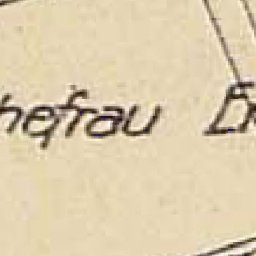 hefrau E